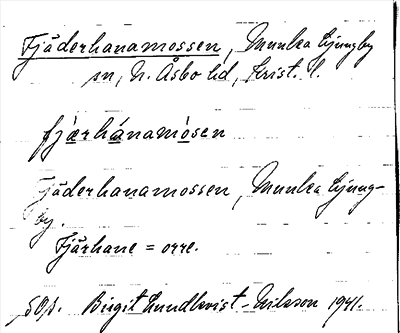 Fjäderhanamossen, Munka Ljungby
sn, N. Åsbo hd, Krist. l.
fjǟrhánamòsen
Fjäderhanamossen, Munka Ljung-
by.
Fjärhane = orre.
Birgit Lundkvist-Eriksson 1941.